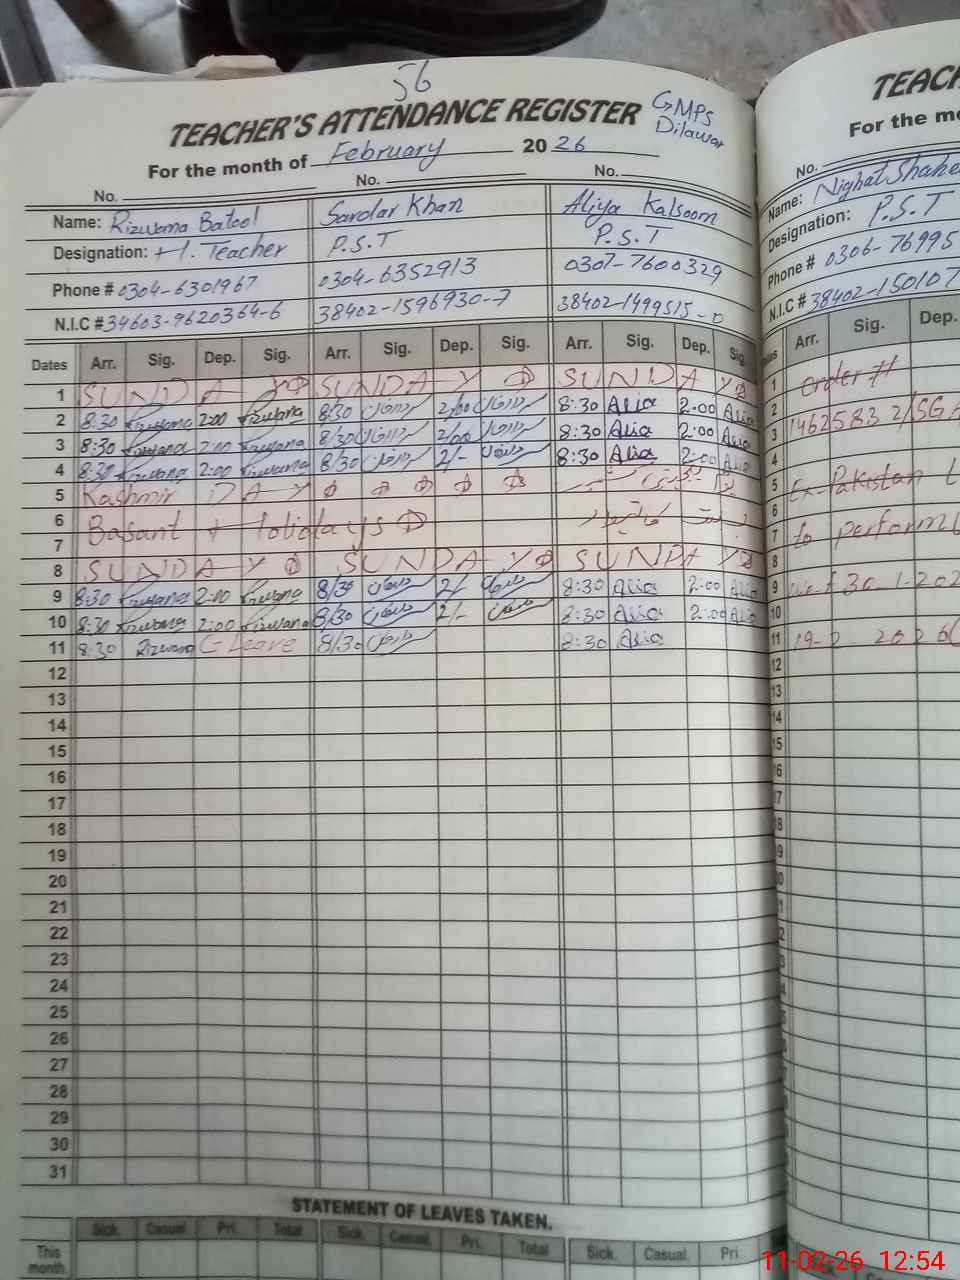 56
TEACHER'S ATTENDANCE REGISTER GMPS
Dilawar
For the month of February 2026
No. No. No.
Name: Rizwana Batool Sardar Khan Aliya Kalsoom
Designation: H. Teacher P.S.T P.S.T
Phone # 0304-6301967 0304-6352913 0307-7600329
N.I.C # 34603-9620364-6 38402-1596930-7 38402-1499515-0
Dates Arr. Sig. Dep. Sig. Arr. Sig. Dep. Sig. Arr. Sig. Dep. Sig.
1 SUNDAY SUNDAY SUNDAY
2 8:30 Rizwana 2:00 Rizwana 8/30 2/00 8:30 Alia 2:00 Alia
3 8:30 Rizwana 2:00 Rizwana 8/30 2/00 8:30 Alia 2:00 Alia
4 8:30 Rizwana 2:00 Rizwana 8/30 2/- 8:30 Alia 2:00 Alia
5 Kashmir DAY
6 Basant Holidays
7
8 SUNDAY SUNDAY SUNDAY
9 8:30 Rizwana 2:00 Rizwana 8/30 2/- 8:30 Alia 2:00 Alia
10 8:30 Rizwana 2:00 Rizwana 8/30 2/- 8:30 Alia 2:00 Alia
11 8:30 Rizwana C-Leave 8/30 8:30 Alia
12
13
14
15
16
17
18
19
20
21
22
23
24
25
26
27
28
29
30
31
STATEMENT OF LEAVES TAKEN.
Sick. Casual. Pri. Total Sick. Casual. Pri. Total Sick. Casual. Pri.
This month.
TEACH
For the mo
No.
Name: Nighat Shahe
Designation: P.S.T
Phone # 0306-76995
N.I.C # 38402-150107
Arr. Sig. Dep.
1 Order #
2
3 1462583 2/SGA
4
5 Ex-Pakistan L
6
7 to perform U
8
9
10
11 19-2 2026
12
13
14
15
16
17
18
19
11-02-26 12:54